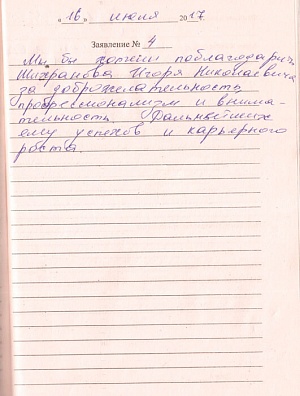 « 16 » июля 2017
Заявление № 4
Мы бы хотели поблагодарить
Шихранова Игоря Николаевича
за доброжелательность
профессионализм и внима-
тельность. Дальнейших
ему успехов и карьерного
роста.